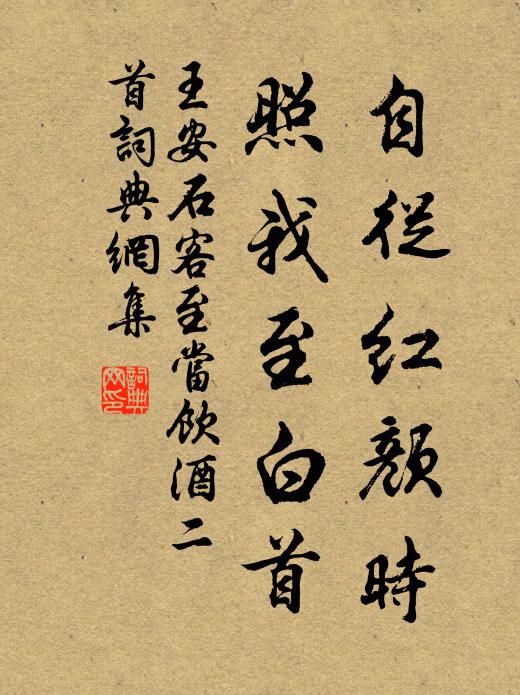 自從红顏時
照我至白首
王安石客至當飲酒二
首詞典網集
詞典
网印